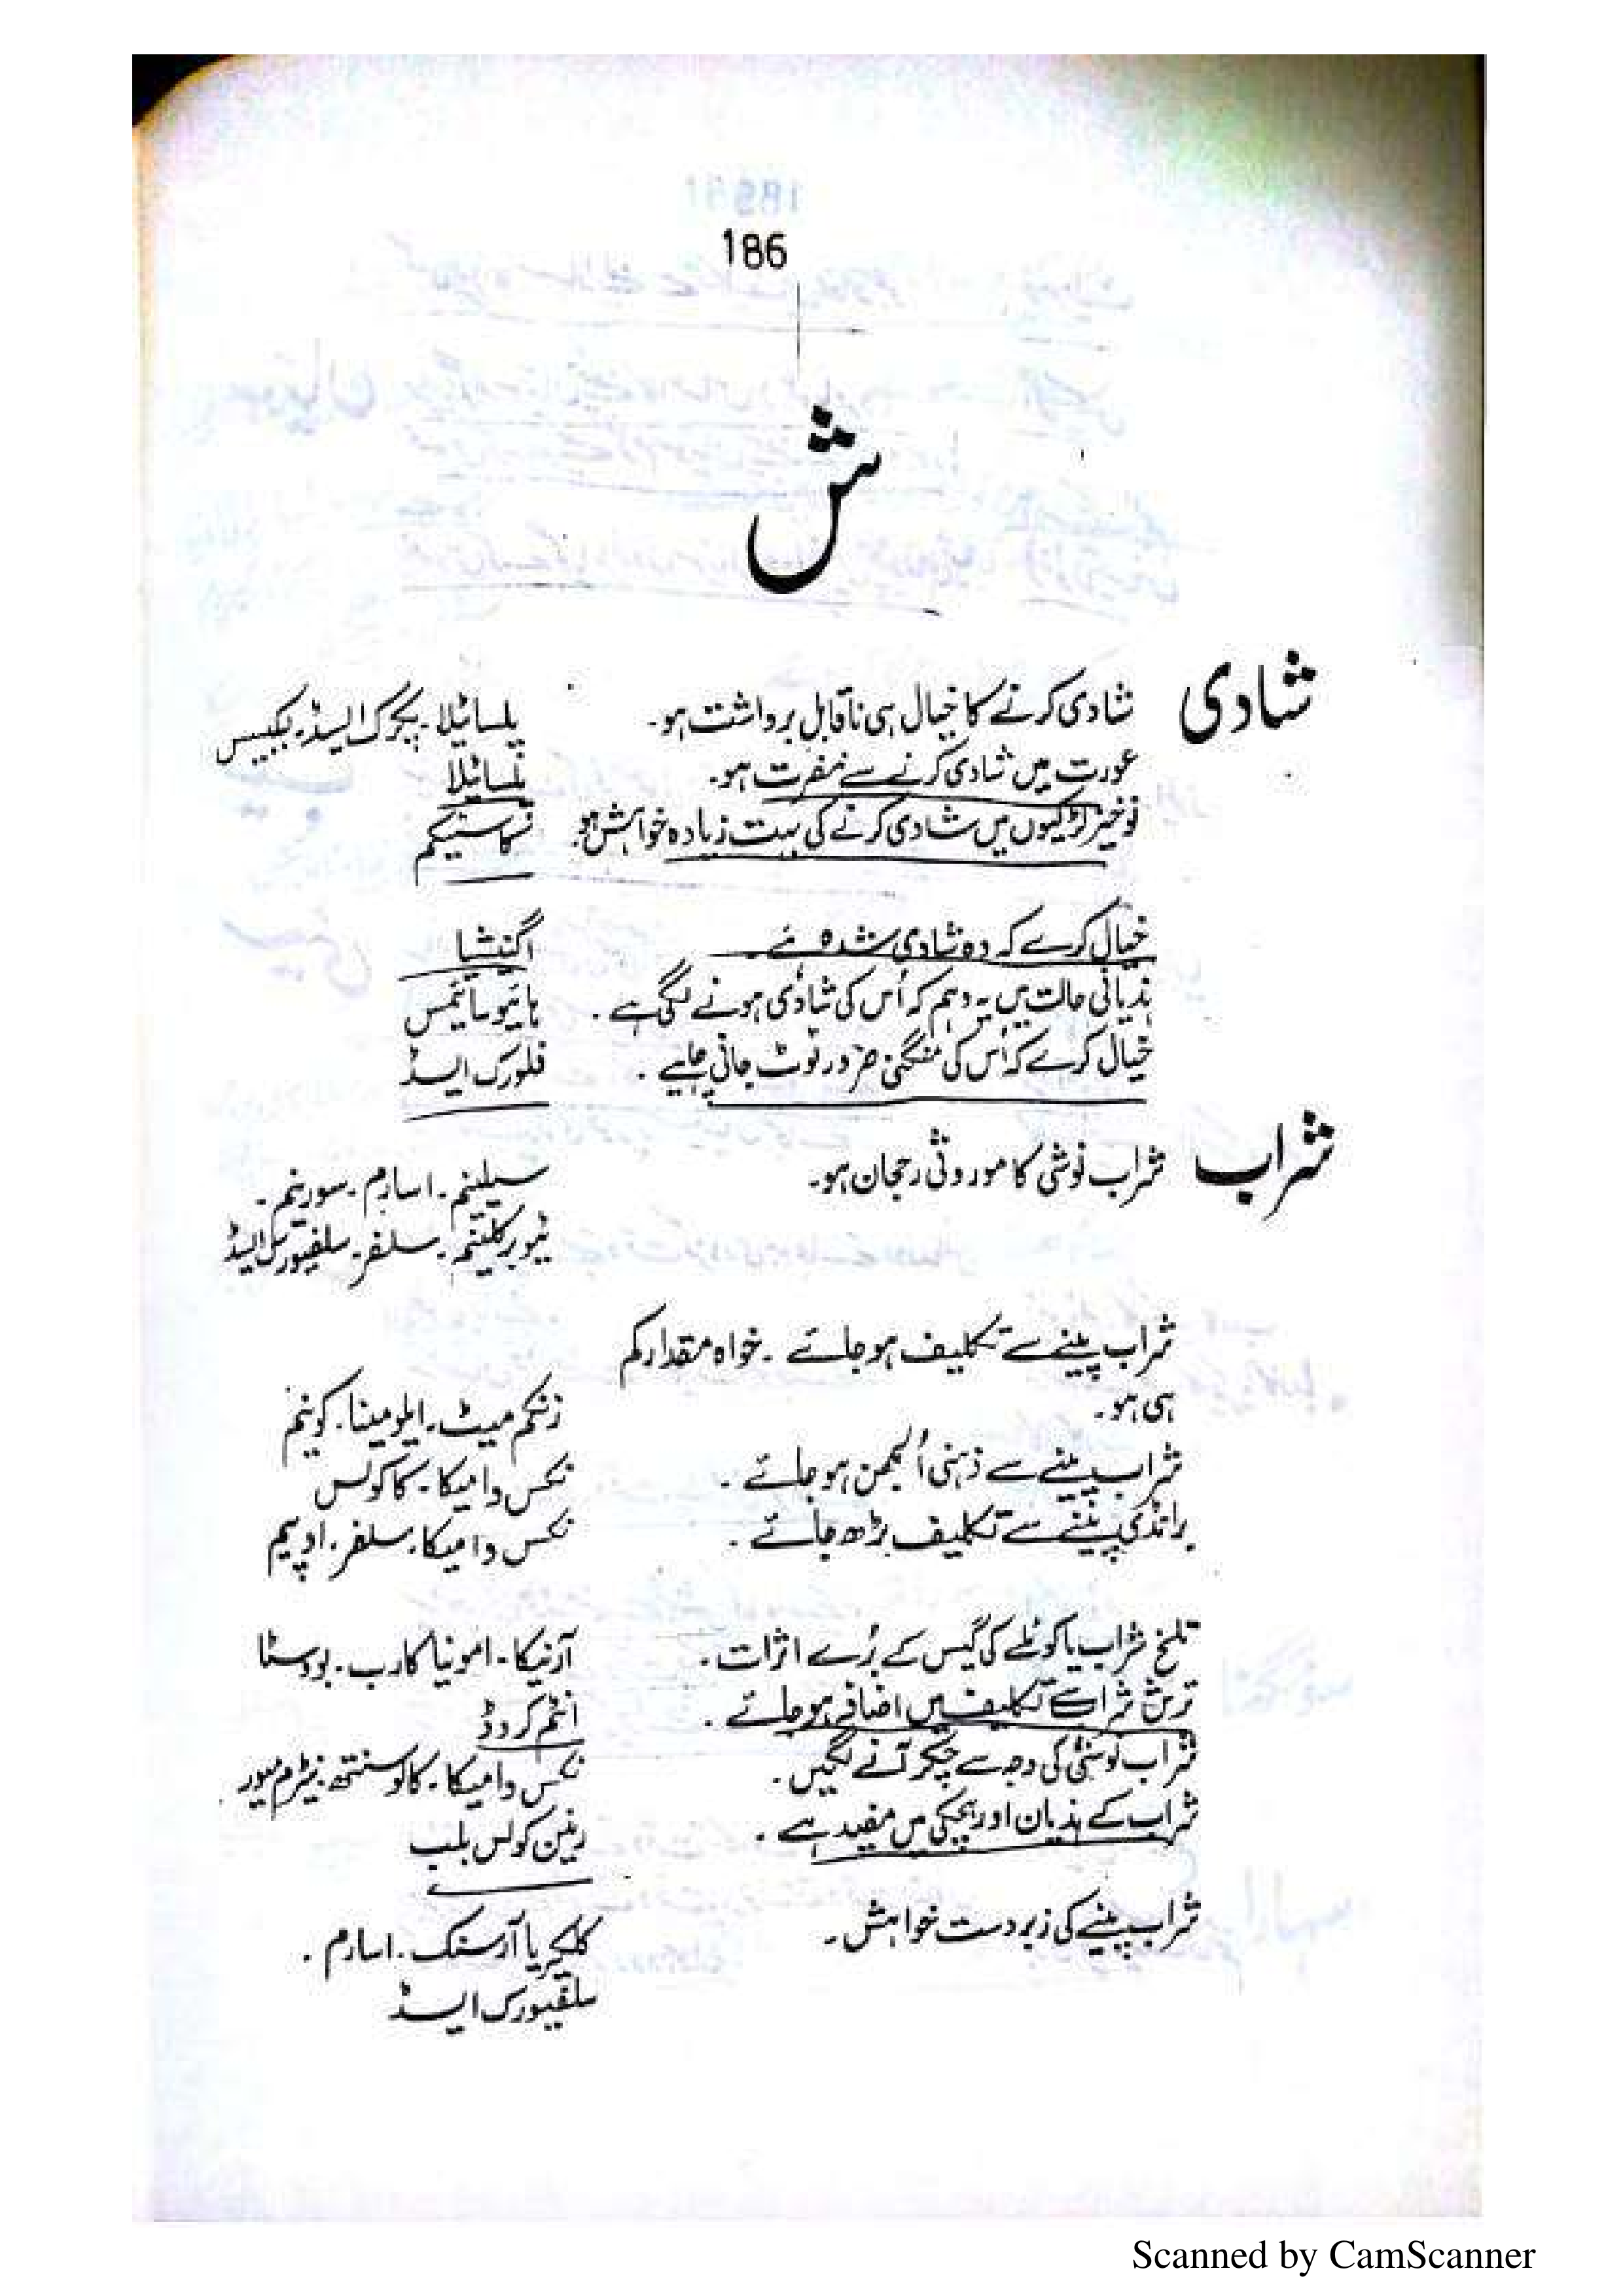 186
ش
شادی
شادی کرنے کا خیال ہی ناقابل برداشت ہو۔ پلساٹیلا۔ پکرک ایسڈ۔
عورت میں شادی کرنے سے نفرت ہو۔ پلساٹیلا
نوخیز لڑکیوں میں شادی کرنے کی بہت زیادہ خواہش ہو۔ کاسٹیکم
خیال کرے کہ وہ شادی شدہ ہے۔ اگنیشیا
ہذیانی حالت میں یہ وہم کہ اُس کی شادی ہونے لگی ہے۔ ہائیوسائمس
خیال کرے کہ اُس کی منگنی ضرور ٹوٹ جانی چاہیے۔ فلورک ایسڈ
شراب
شراب نوشی کا موروثی رجحان ہو۔ سیلینیم۔ اسارم۔ سورینم۔
ٹیوبرکلینم۔ سلفر۔ سلفیورک ایسڈ
شراب پینے سے تکلیف ہو جائے۔ خواہ مقدار کم
ہی ہو۔ زنکم میٹ۔ ایلومینا۔ کونیم
شراب پینے سے ذہنی اُلجھن ہو جائے۔ نکس وامیکا۔ کاکولس
برانڈی پینے سے تکلیف بڑھ جائے۔ نکس وامیکا۔ سلفر۔ اوپیم
تلخ شراب یا کوئلے کی گیس کے بُرے اثرات۔ آرنیکا۔ امونیا کارب۔ بووسٹا
ترش شراب سے تکلیف میں اضافہ ہو جائے۔ انٹم کروڈ
شراب نوشی کی وجہ سے چکر آنے لگیں۔ نکس وامیکا۔ کالوسنتھ۔ نیٹرم میور
شراب کے ہذیان اور ہچکی میں مفید ہے۔ رینن کولس بلب
شراب پینے کی زبردست خواہش۔ کلکیریا آرسنک۔ اسارم۔
سلفیورک ایسڈ
Scanned by CamScanner